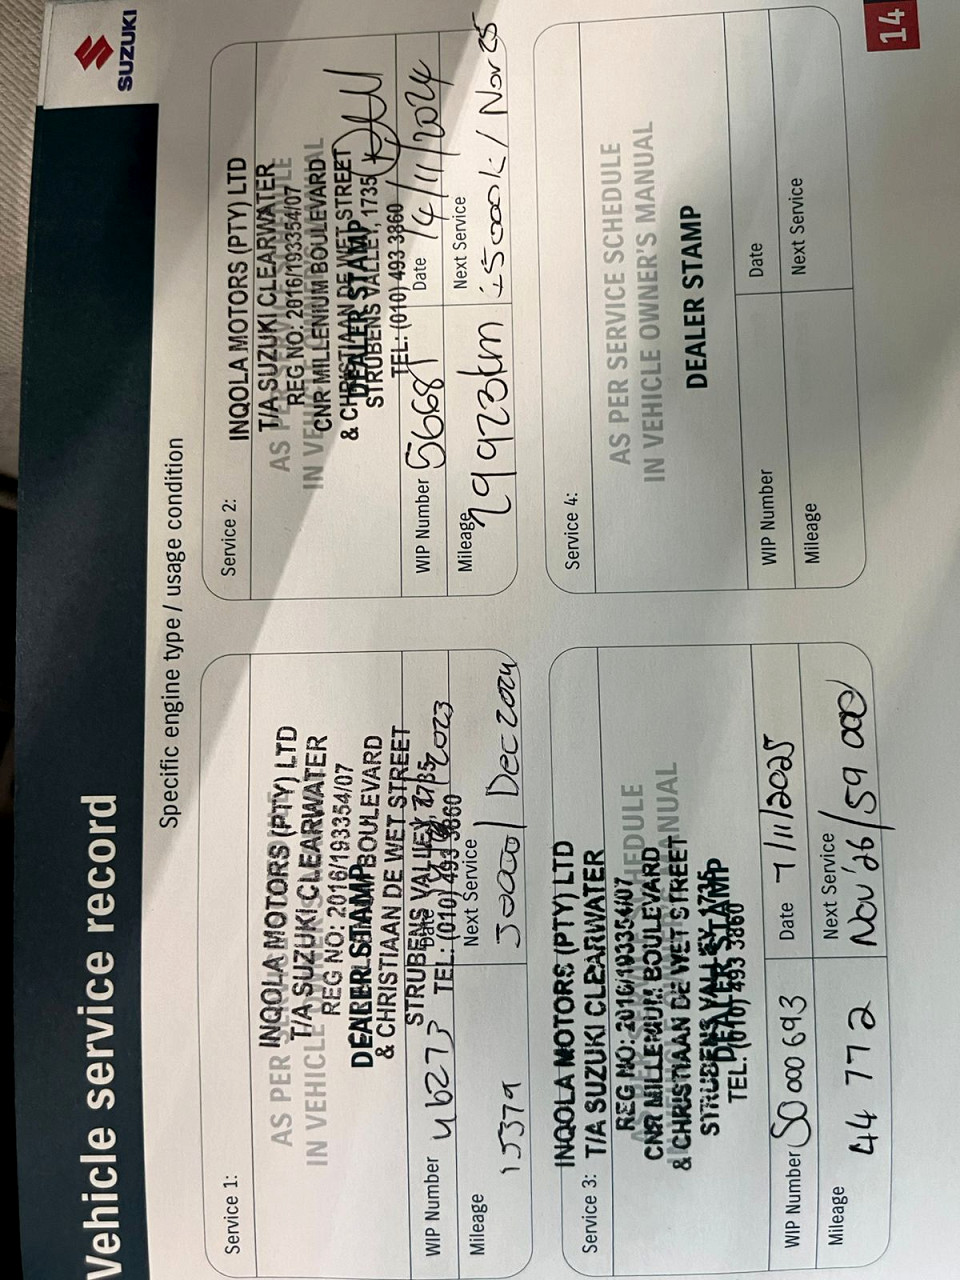 SUZUKI
Vehicle service record
Specific engine type / usage condition
Service 1:
AS PER
IN VEHICLE
INQOLA MOTORS (PTY) LTD
T/A SUZUKI CLEARWATER
REG NO: 2016/193354/07
DEALER STAMP
BOULEVARD
& CHRISTIAAN DE WET STREET
STRUBENS VALLEY
TEL: (010) 493 3860
WIP Number 46273
Date 2023
Mileage 15379
Next Service 30000 / Dec 2024
Service 2:
INQOLA MOTORS (PTY) LTD
T/A SUZUKI CLEARWATER
REG NO: 2016/193354/07
CNR MILLENIUM BOULEVARD
& CHRISTIAAN DE WET STREET
DEALER STAMP
STRUBENS VALLEY, 1735
TEL: (010) 493 3860
WIP Number 56681
Date 14/11/2024
Mileage 29923km
Next Service 45000k / Nov 25
Service 3:
INQOLA MOTORS (PTY) LTD
T/A SUZUKI CLEARWATER
REG NO: 2016/193354/07
CNR MILLENIUM BOULEVARD
& CHRISTIAAN DE WET STREET
STRUBENS VALLEY, 1735
DEALER STAMP
TEL: (010) 493 3860
WIP Number 50000693
Date 7/11/2025
Mileage 44 772
Next Service Nov'26/59 000
Service 4:
AS PER SERVICE SCHEDULE
IN VEHICLE OWNER'S MANUAL
DEALER STAMP
WIP Number
Date
Mileage
Next Service
14